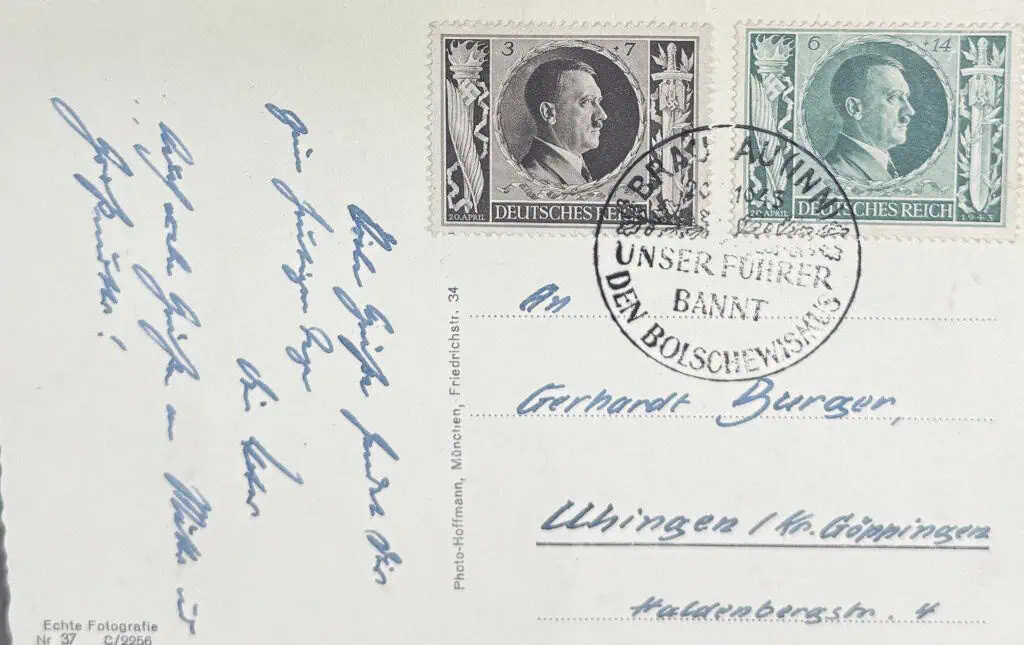 3 +7
20. APRIL
DEUTSCHES REICH
6 +14
20. APRIL
DEUTSCHES REICH
1943
BRAUNAU (INN)
1943
UNSER FÜHRER
BANNT
DEN BOLSCHEWISMUS
Viele Grüße sendet Dir
Dein
Auch Grüße an Mutter
An
Gerhardt Burger,
Uhingen / Kr. Göppingen
Haldenbergstr. 4
Photo-Hoffmann, München, Friedrichstr. 34
Echte Fotografie
Nr 37 C/2256